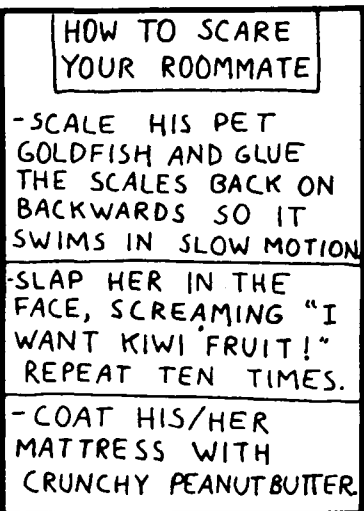 HOW TO SCARE
YOUR ROOMMATE
-SCALE HIS PET
GOLDFISH AND GLUE
THE SCALES BACK ON
BACKWARDS SO IT
SWIMS IN SLOW MOTION
-SLAP HER IN THE
FACE, SCREAMING "I
WANT KIWI FRUIT!"
REPEAT TEN TIMES.
-COAT HIS/HER
MATTRESS WITH
CRUNCHY PEANUT BUTTER.